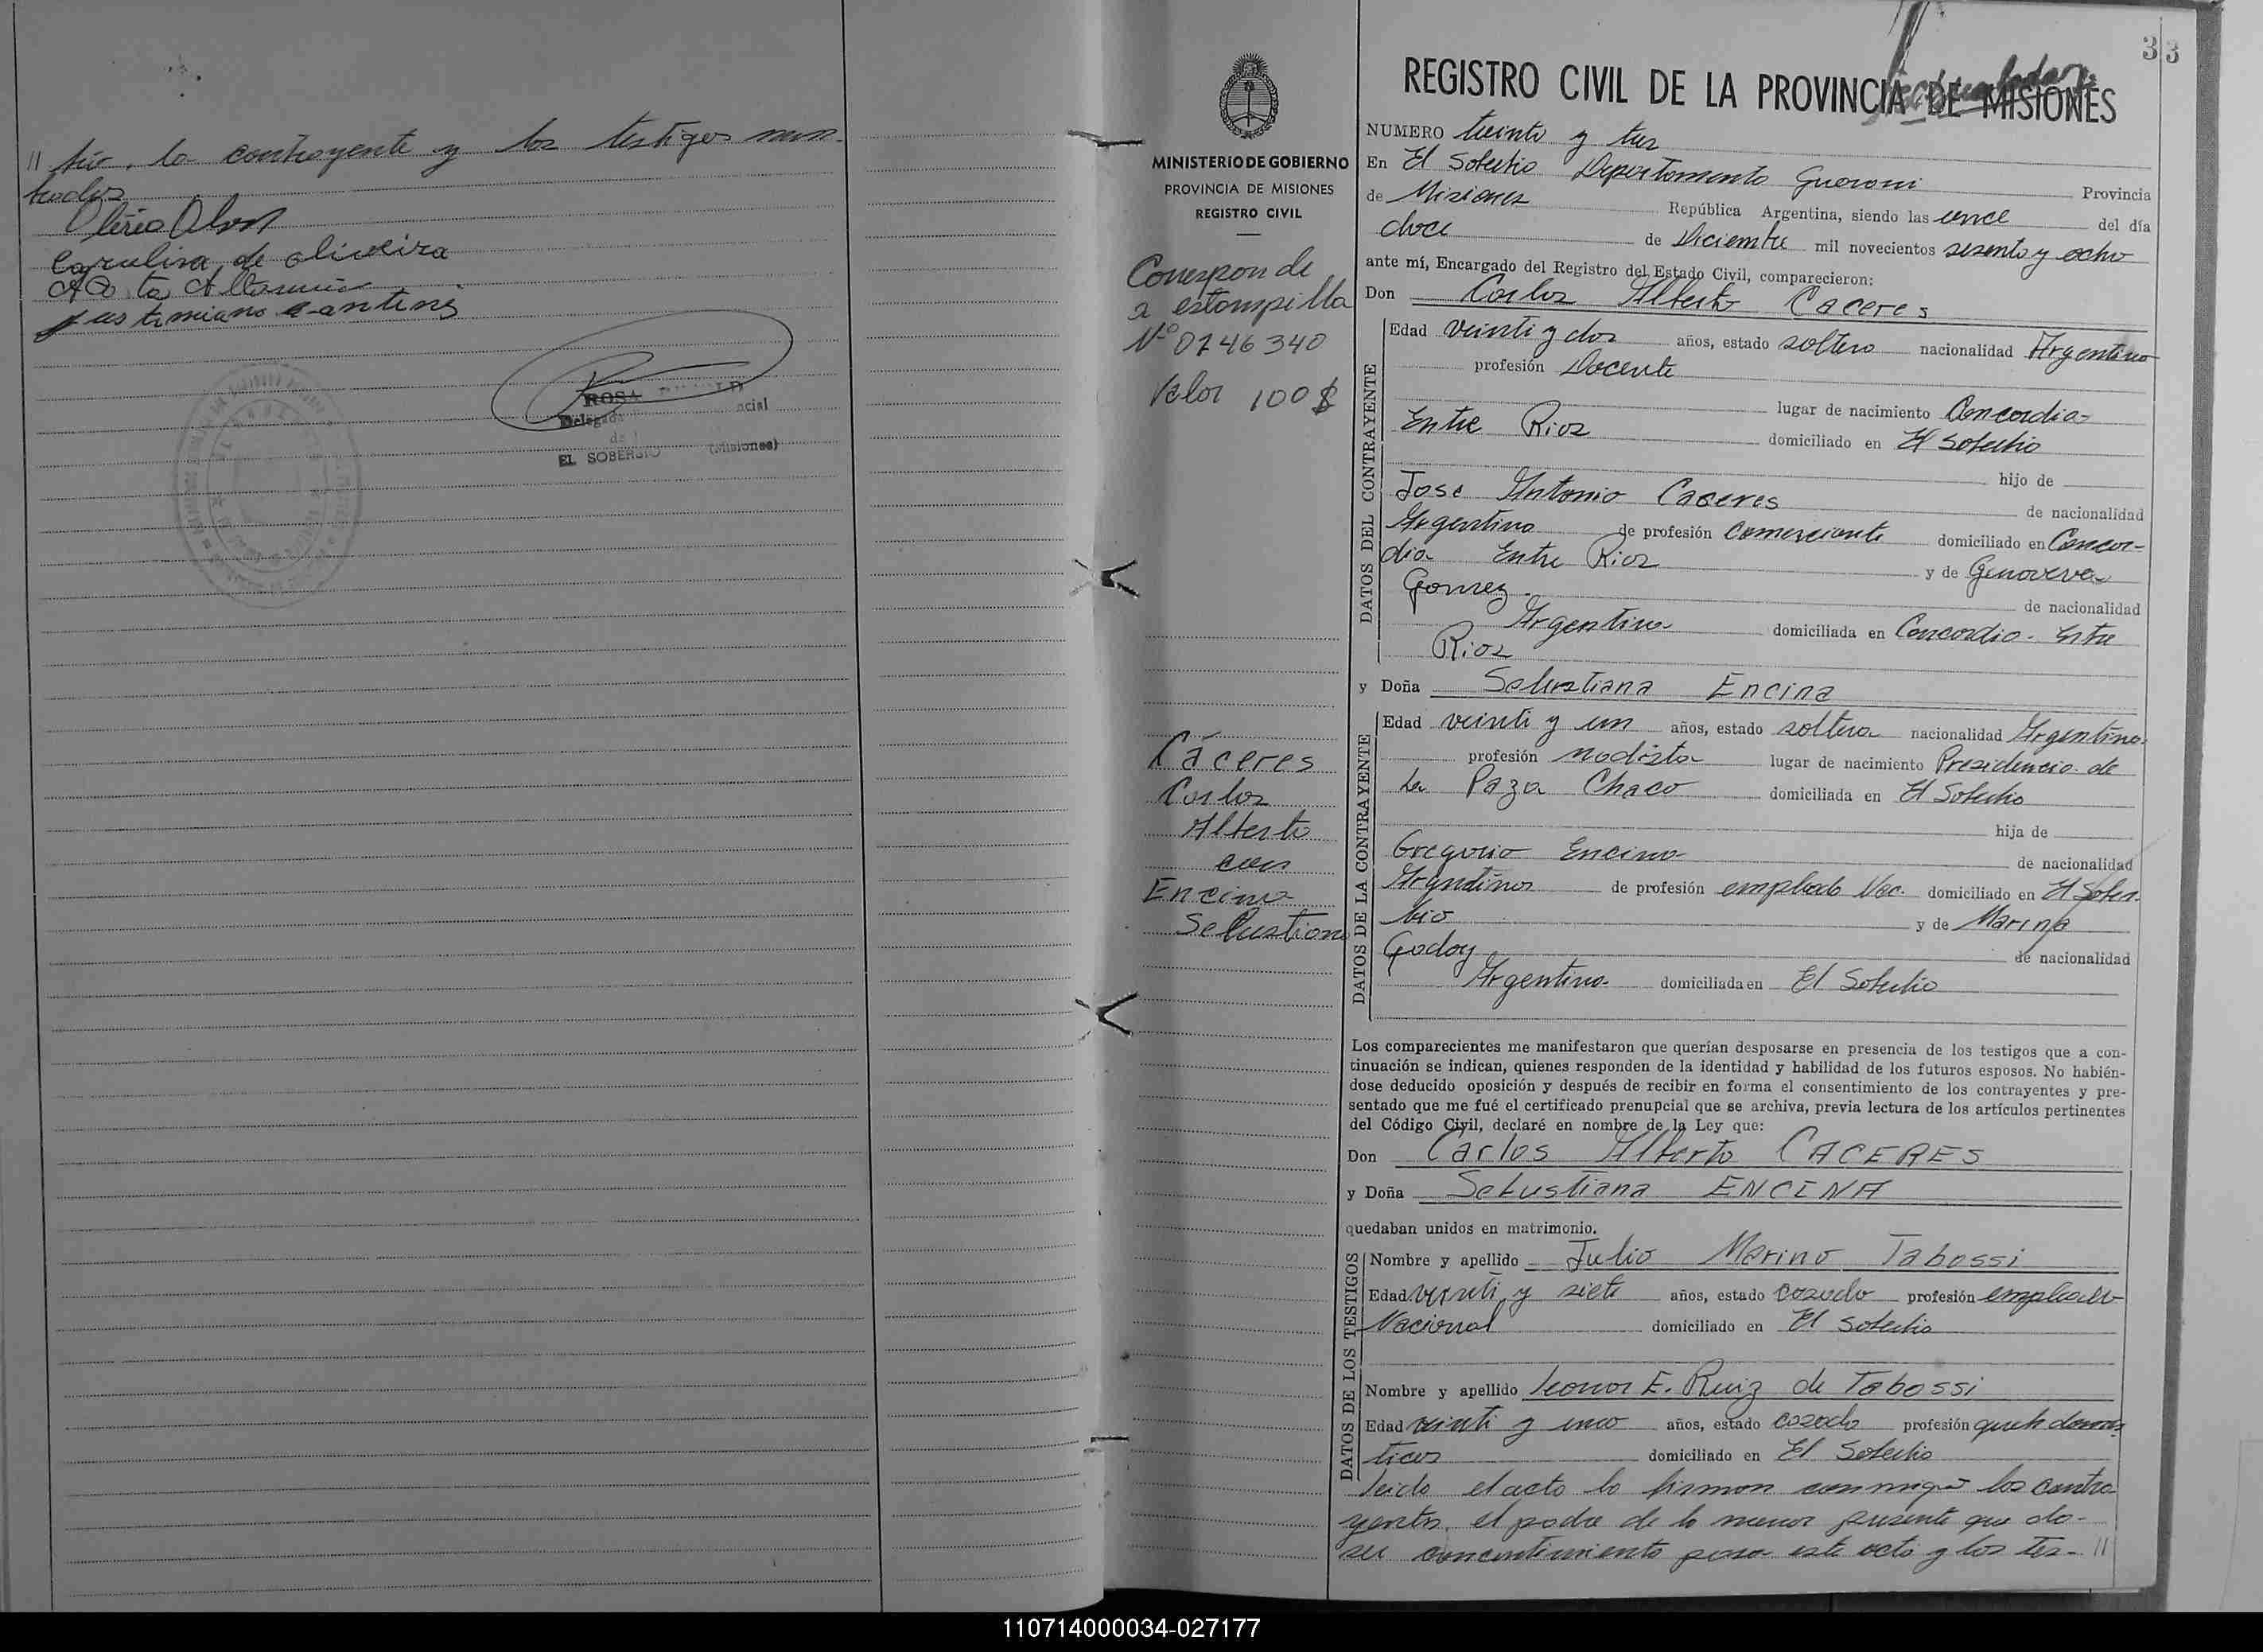 // trio, la contrayente y los testigos nom-
brados
Carulina de oliveira
Justimiano
ROSA
Delegada
EL SOBERBIO (Misiones)
33
REGISTRO CIVIL DE LA PROVINCIA DE MISIONES
MINISTERIO DE GOBIERNO
PROVINCIA DE MISIONES
REGISTRO CIVIL
Corresponde
a estampilla
Nº 0746340
Valor 100 $
Cáceres
Carlos
Alberto
con
Encina
Sebastiana
NUMERO treinta y tres
En El Soberbio Departamento Guarani Provincia
de Misiones República Argentina, siendo las once del día
doce de Diciembre mil novecientos sesenta y ocho
ante mí, Encargado del Registro del Estado Civil, comparecieron:
Don Carlos Alberto Caceres
DATOS DEL CONTRAYENTE
Edad veinti y dos años, estado soltero nacionalidad Argentino
profesión Docente
lugar de nacimiento Concordia-
Entre Rios domiciliado en El Soberbio
hijo de
Jose Antonio Caceres de nacionalidad
Argentino de profesión Comerciante domiciliado en Concor-
dia Entre Rios y de Genoveva
Gomez. de nacionalidad
Argentina domiciliada en Concordia. Entre
Rios
y Doña Sebastiana Encina
DATOS DE LA CONTRAYENTE
Edad veinti y un años, estado soltera nacionalidad Argentina.
profesión modista lugar de nacimiento Presidencia de
la Paza Chaco domiciliada en El Soberbio
hija de
Gregorio Encina de nacionalidad
Argentino de profesión empleado Nac. domiciliado en El Sober-
bio y de Marina
Godoy de nacionalidad
Argentina domiciliada en El Soberbio
Los comparecientes me manifestaron que querían desposarse en presencia de los testigos que a con-
tinuación se indican, quienes responden de la identidad y habilidad de los futuros esposos. No habién-
dose deducido oposición y después de recibir en forma el consentimiento de los contrayentes y pre-
sentado que me fué el certificado prenupcial que se archiva, previa lectura de los artículos pertinentes
del Código Civil, declaré en nombre de la Ley que:
Don Carlos Alberto CACERES
y Doña Sebastiana ENCINA
quedaban unidos en matrimonio.
DATOS DE LOS TESTIGOS
Nombre y apellido Julio Marino Tabossi
Edad veinti y siete años, estado casado profesión empleado
Nacional domiciliado en El Soberbio
Nombre y apellido Leonor E. Ruiz de Tabossi
Edad veinti y cinco años, estado casada profesión queh. domes
ticos domiciliado en El Soberbio
Leido el acto lo firman conmigo los contra-
yentes, el padre de la menor presente que da-
su concentimiento para este acto y los tes- //
110714000034-027177